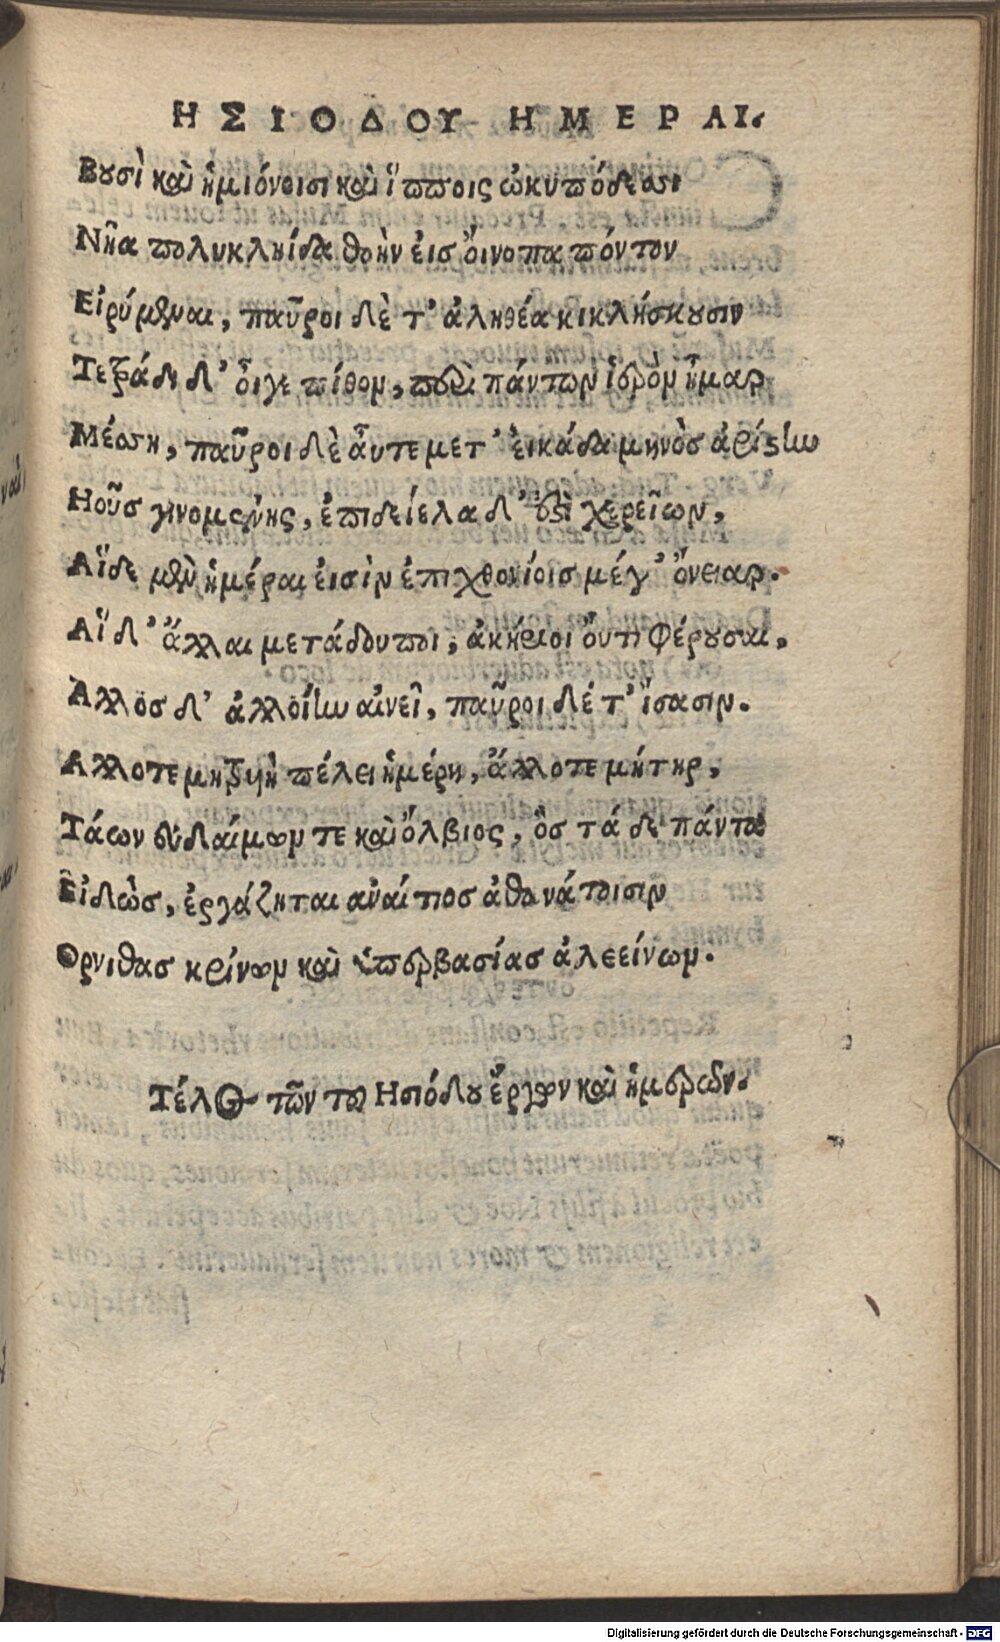 ΗΣΙΟΔΟΥ ΗΜΕΡΑΙ.
Βουσὶ καὶ ἡμιόνοισι καὶ ἵπποις ὠκυπόδεσσι
Νῆα πολυκληίδα θοὴν εἰσ οἴνοπα πόντον
Εἰρύμεναι, παῦροι δὲ τ' ἀληθέα κικλήσκουσιν
Τετράδι δ' οἶγε πίθον, περὶ πάντων ἱερὸν ἦμαρ
Μέσση, παῦροι δὲ αὖτε μετ' εἰκάδα μηνὸσ ἀρίστην
Ηοῦσ γινομένης, ἐπιδείελα δ' ὅξὶ χερείων,
Αἵδε μὲν ἡμέραι εἰσὶν ἐπιχθονίοισ μέγ' ὄνειαρ.
Αἵ δ' ἄλλαι μετάδουποι, ἀκήριοι οὔτι φέρουσαι,
Ἄλλοσ δ' ἀλλοίην αἰνεῖ, παῦροι δέ τ' ἴσασιν.
Αλλοτε μητρυὴ πέλει ἡμέρη, ἄλλοτε μήτηρ,
Τάων εὐδαίμων τε καὶ ὄλβιος, ὃσ τά δε πάντα
Εἰδὼσ, ἐργάζηται ἀναίτιοσ ἀθανάτοισιν
Ορνιθασ κρίνων καὶ ὑπερβασίασ ἀλεείνων.
Τέλος τῶν τοῦ Ησιόδου ἔργων καὶ ἡμερῶν.
Digitalisierung gefördert durch die Deutsche Forschungsgemeinschaft - DFG